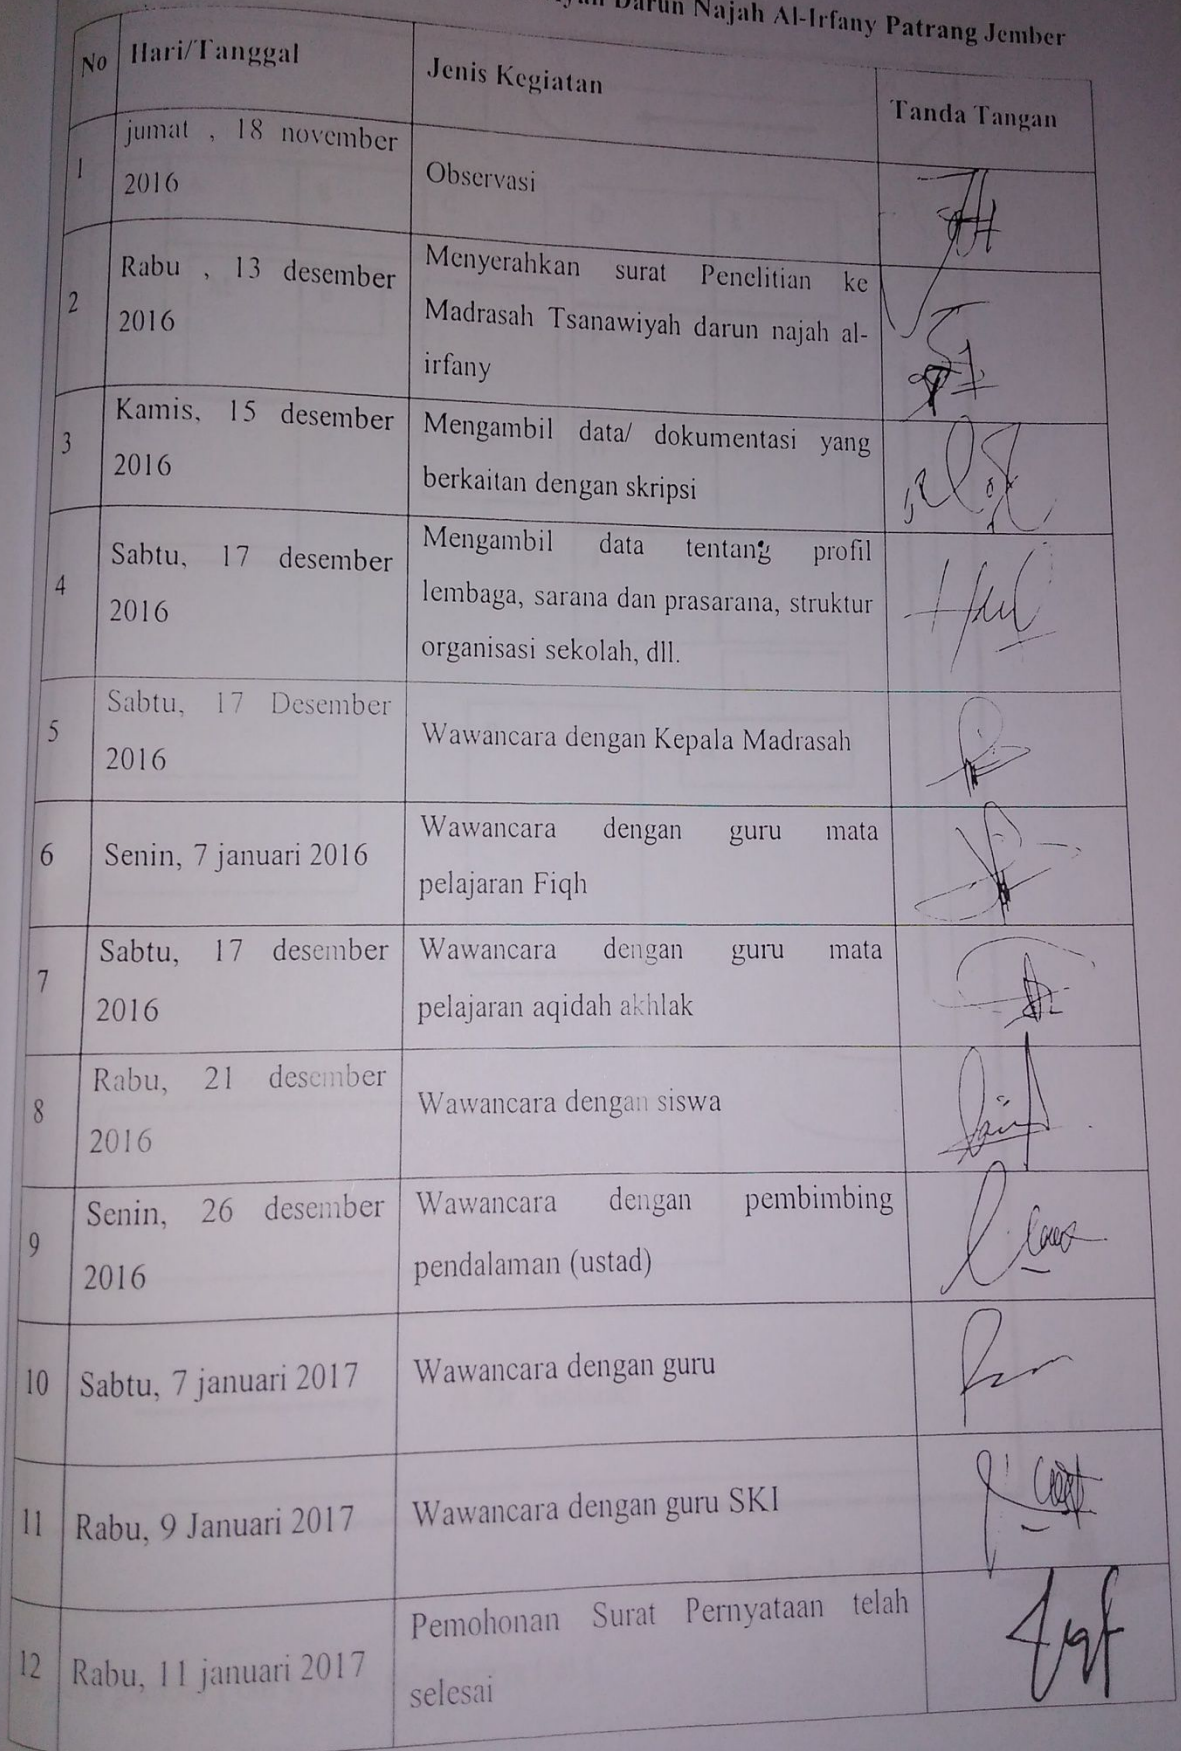 Darun Najah Al-Irfany Patrang Jember
No Hari/Tanggal Jenis Kegiatan Tanda Tangan
1 jumat , 18 november
2016
Observasi
2 Rabu , 13 desember
2016
Menyerahkan surat Penelitian ke
Madrasah Tsanawiyah darun najah al-
irfany
3 Kamis, 15 desember
2016
Mengambil data/ dokumentasi yang
berkaitan dengan skripsi
4 Sabtu, 17 desember
2016
Mengambil data tentang profil
lembaga, sarana dan prasarana, struktur
organisasi sekolah, dll.
5 Sabtu, 17 Desember
2016
Wawancara dengan Kepala Madrasah
6 Senin, 7 januari 2016
Wawancara dengan guru mata
pelajaran Fiqh
7 Sabtu, 17 desember
2016
Wawancara dengan guru mata
pelajaran aqidah akhlak
8 Rabu, 21 desember
2016
Wawancara dengan siswa
9 Senin, 26 desember
2016
Wawancara dengan pembimbing
pendalaman (ustad)
10 Sabtu, 7 januari 2017
Wawancara dengan guru
11 Rabu, 9 Januari 2017
Wawancara dengan guru SKI
12 Rabu, 11 januari 2017
Pemohonan Surat Pernyataan telah
selesai